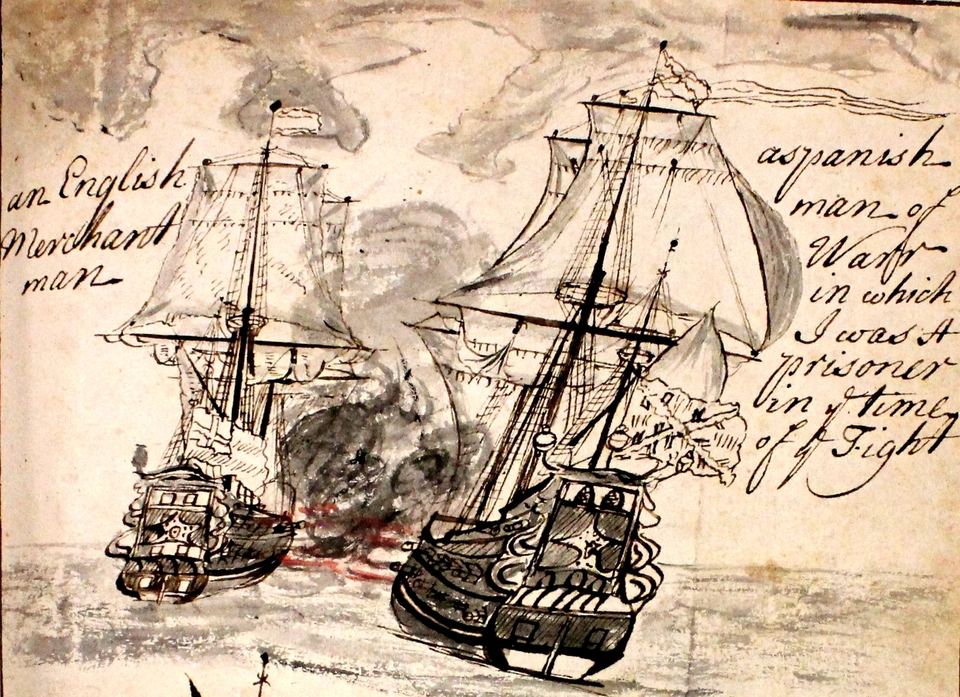 an English
Merchant
man
aspanish
man of
Warr
in which
I was A
prisoner
in yͤ time
of yͤ Fight